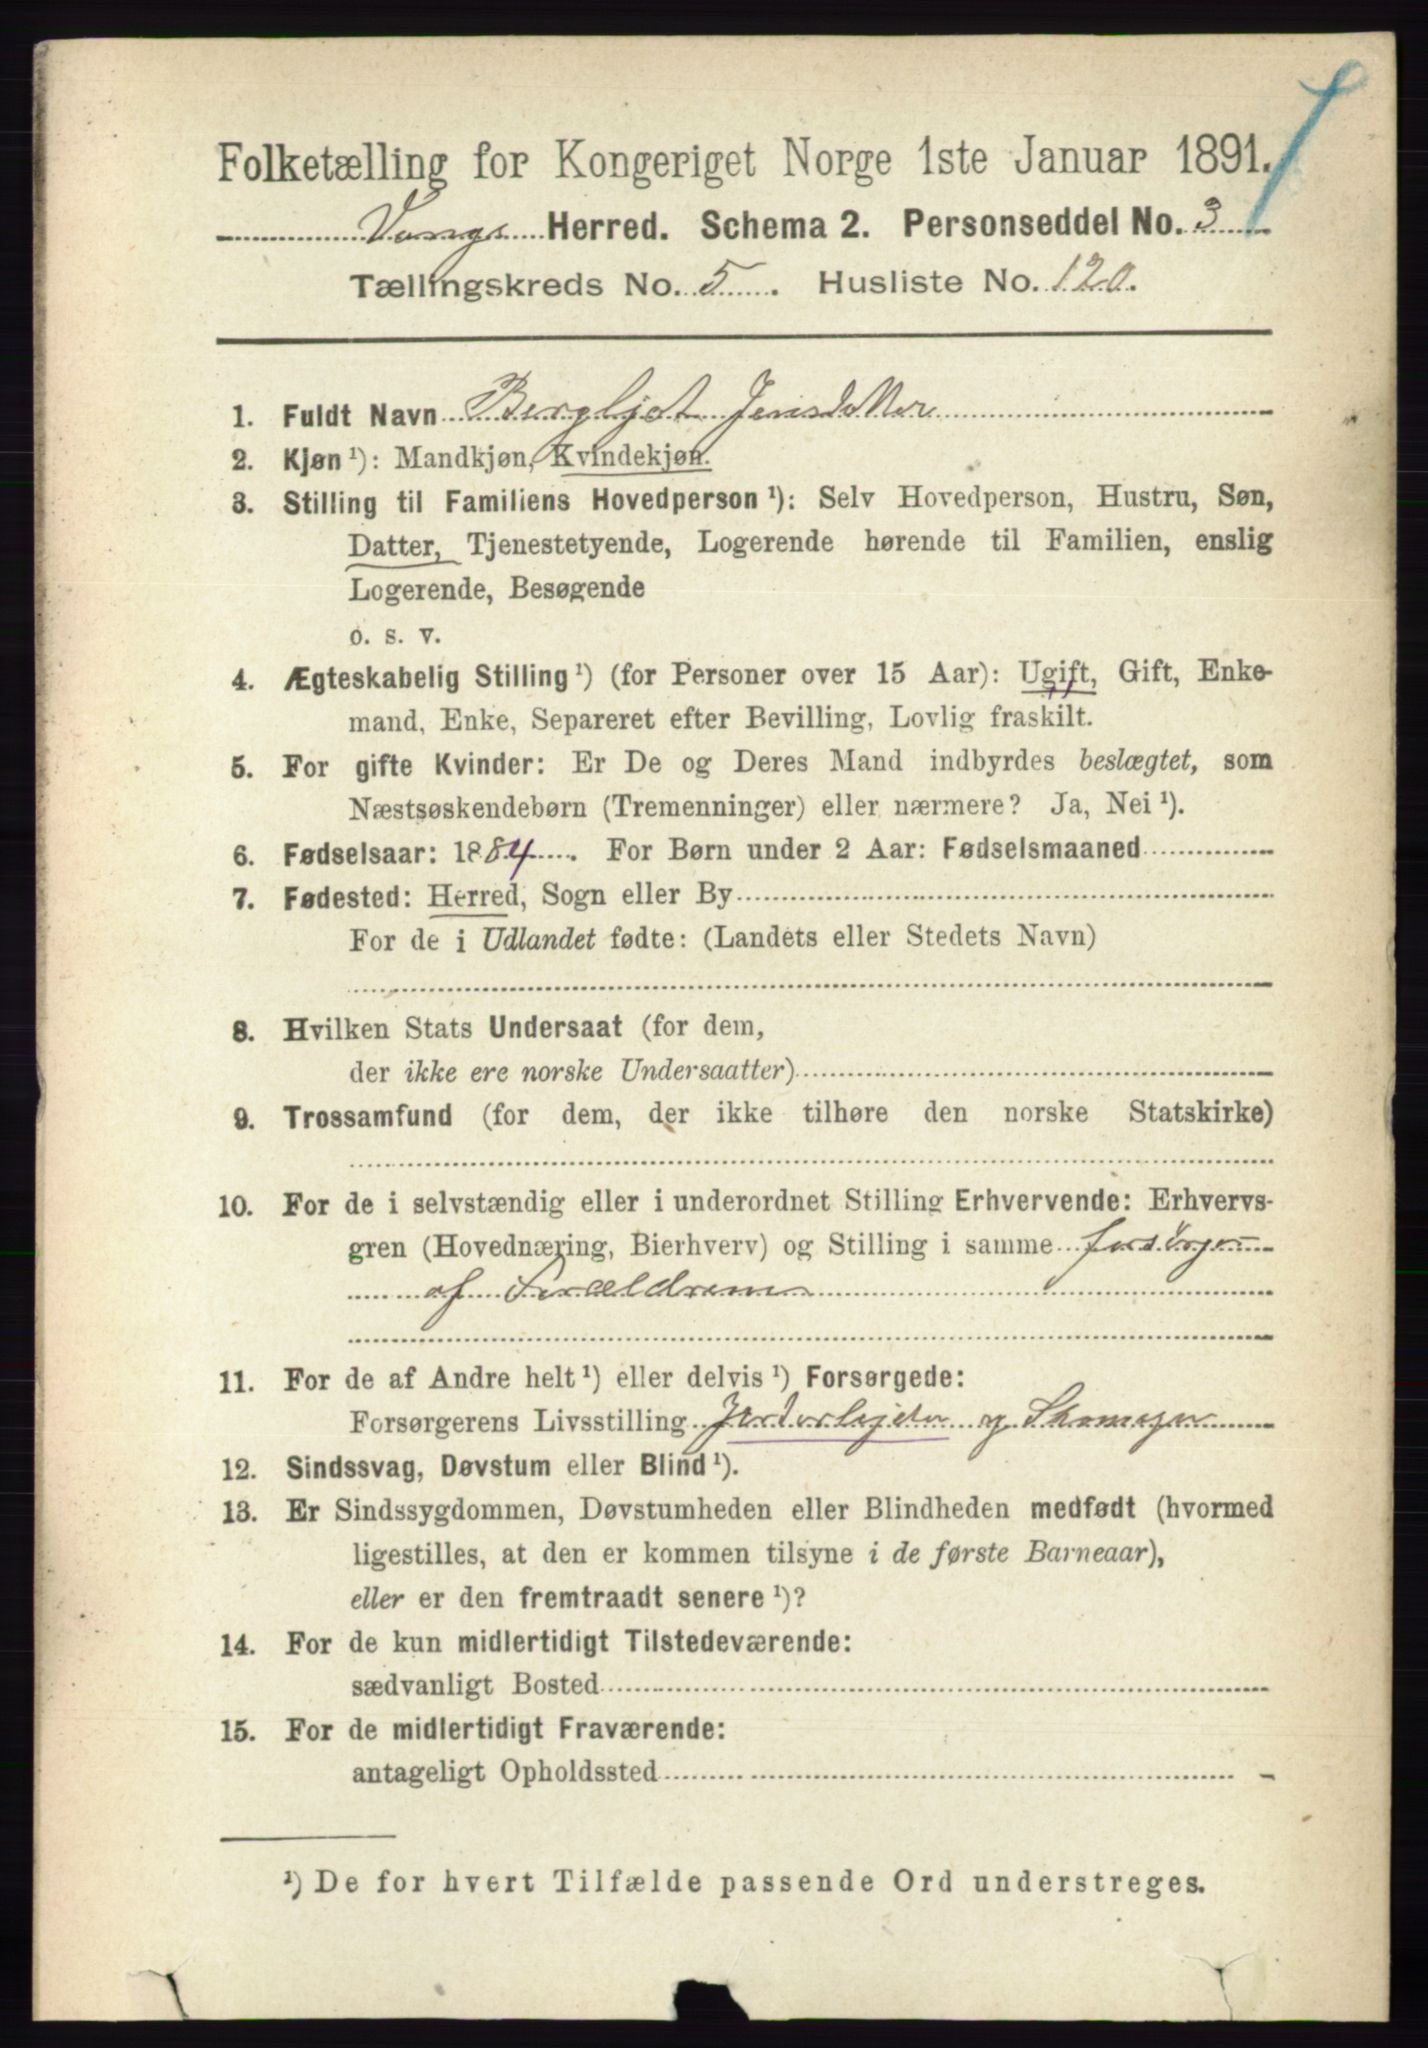 Folketælling for Kongeriget Norge 1ste Januar 1891.
Vangs Herred. Schema 2. Personseddel No. 3
Tællingskreds No. 5. Husliste No. 120.
1. Fuldt Navn Bergljot Jensdatter
2. Kjøn ¹): Mandkjøn, Kvindekjøn.
3. Stilling til Familiens Hovedperson ¹): Selv Hovedperson, Hustru, Søn,
Datter, Tjenestetyende, Logerende hørende til Familien, enslig
Logerende, Besøgende
o. s. v.
4. Ægteskabelig Stilling ¹) (for Personer over 15 Aar): Ugift, Gift, Enke-
mand, Enke, Separeret efter Bevilling, Lovlig fraskilt.
5. For gifte Kvinder: Er De og Deres Mand indbyrdes beslægtet, som
Næstsøskendebørn (Tremenninger) eller nærmere? Ja, Nei ¹).
6. Fødselsaar: 1884. For Børn under 2 Aar: Fødselsmaaned
7. Fødested: Herred, Sogn eller By
For de i Udlandet fødte: (Landets eller Stedets Navn)
8. Hvilken Stats Undersaat (for dem,
der ikke ere norske Undersaatter)
9. Trossamfund (for dem, der ikke tilhøre den norske Statskirke)
10. For de i selvstændig eller i underordnet Stilling Erhvervende: Erhvervs-
gren (Hovednæring, Bierhverv) og Stilling i samme forsörges
af Forældrene
11. For de af Andre helt ¹) eller delvis ¹) Forsørgede:
Forsørgerens Livsstilling og Skomager
12. Sindssvag, Døvstum eller Blind ¹).
13. Er Sindssygdommen, Døvstumheden eller Blindheden medfødt (hvormed
ligestilles, at den er kommen tilsyne i de første Barneaar),
eller er den fremtraadt senere ¹)?
14. For de kun midlertidigt Tilstedeværende:
sædvanligt Bosted
15. For de midlertidigt Fraværende:
antageligt Opholdssted
¹) De for hvert Tilfælde passende Ord understreges.